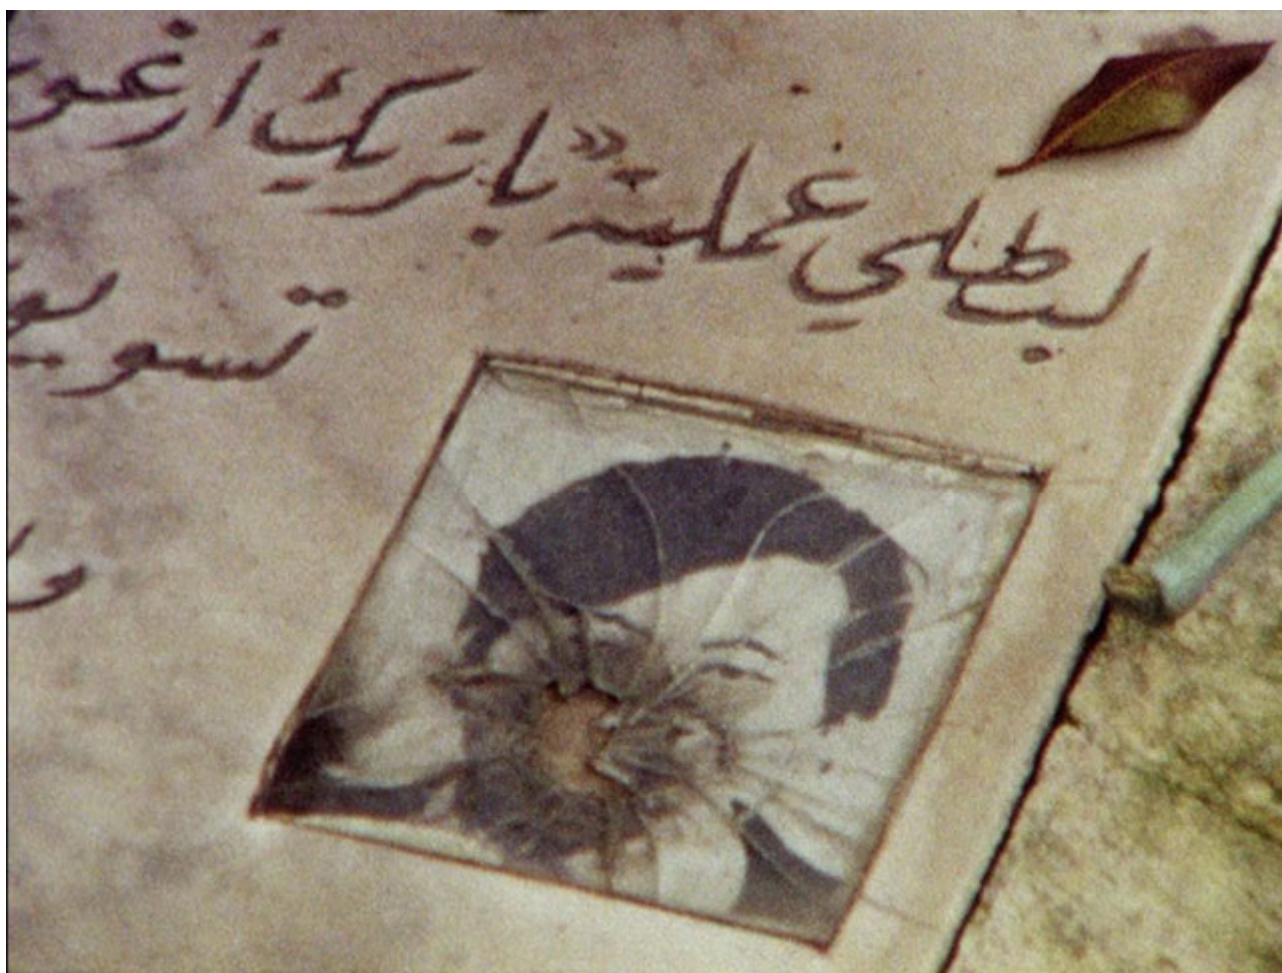 لبطلي عملية «باتريك أرغو
تسويـ
و